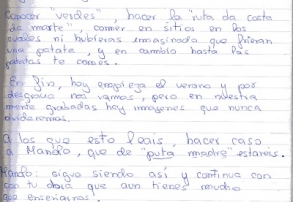 conocer "verdes", hacer la "ruta da costa
da morte", comer en sitios en los
cuales ni hubieras imaginado que fueran
una patata, y en cambio hasta las
patatas te comes.
En fin, hoy empieza el verano y por
desgracia nos vamos, pero en nuestra
mente grabadas hay imagenes que nunca
olvidaremos.
A los que esto leais, hacer caso
Mando, que de "puta madre" estareis.
Mando: sigue siendo así y continua con
con tu obra que aun tienes mucho
que enseñarnos.